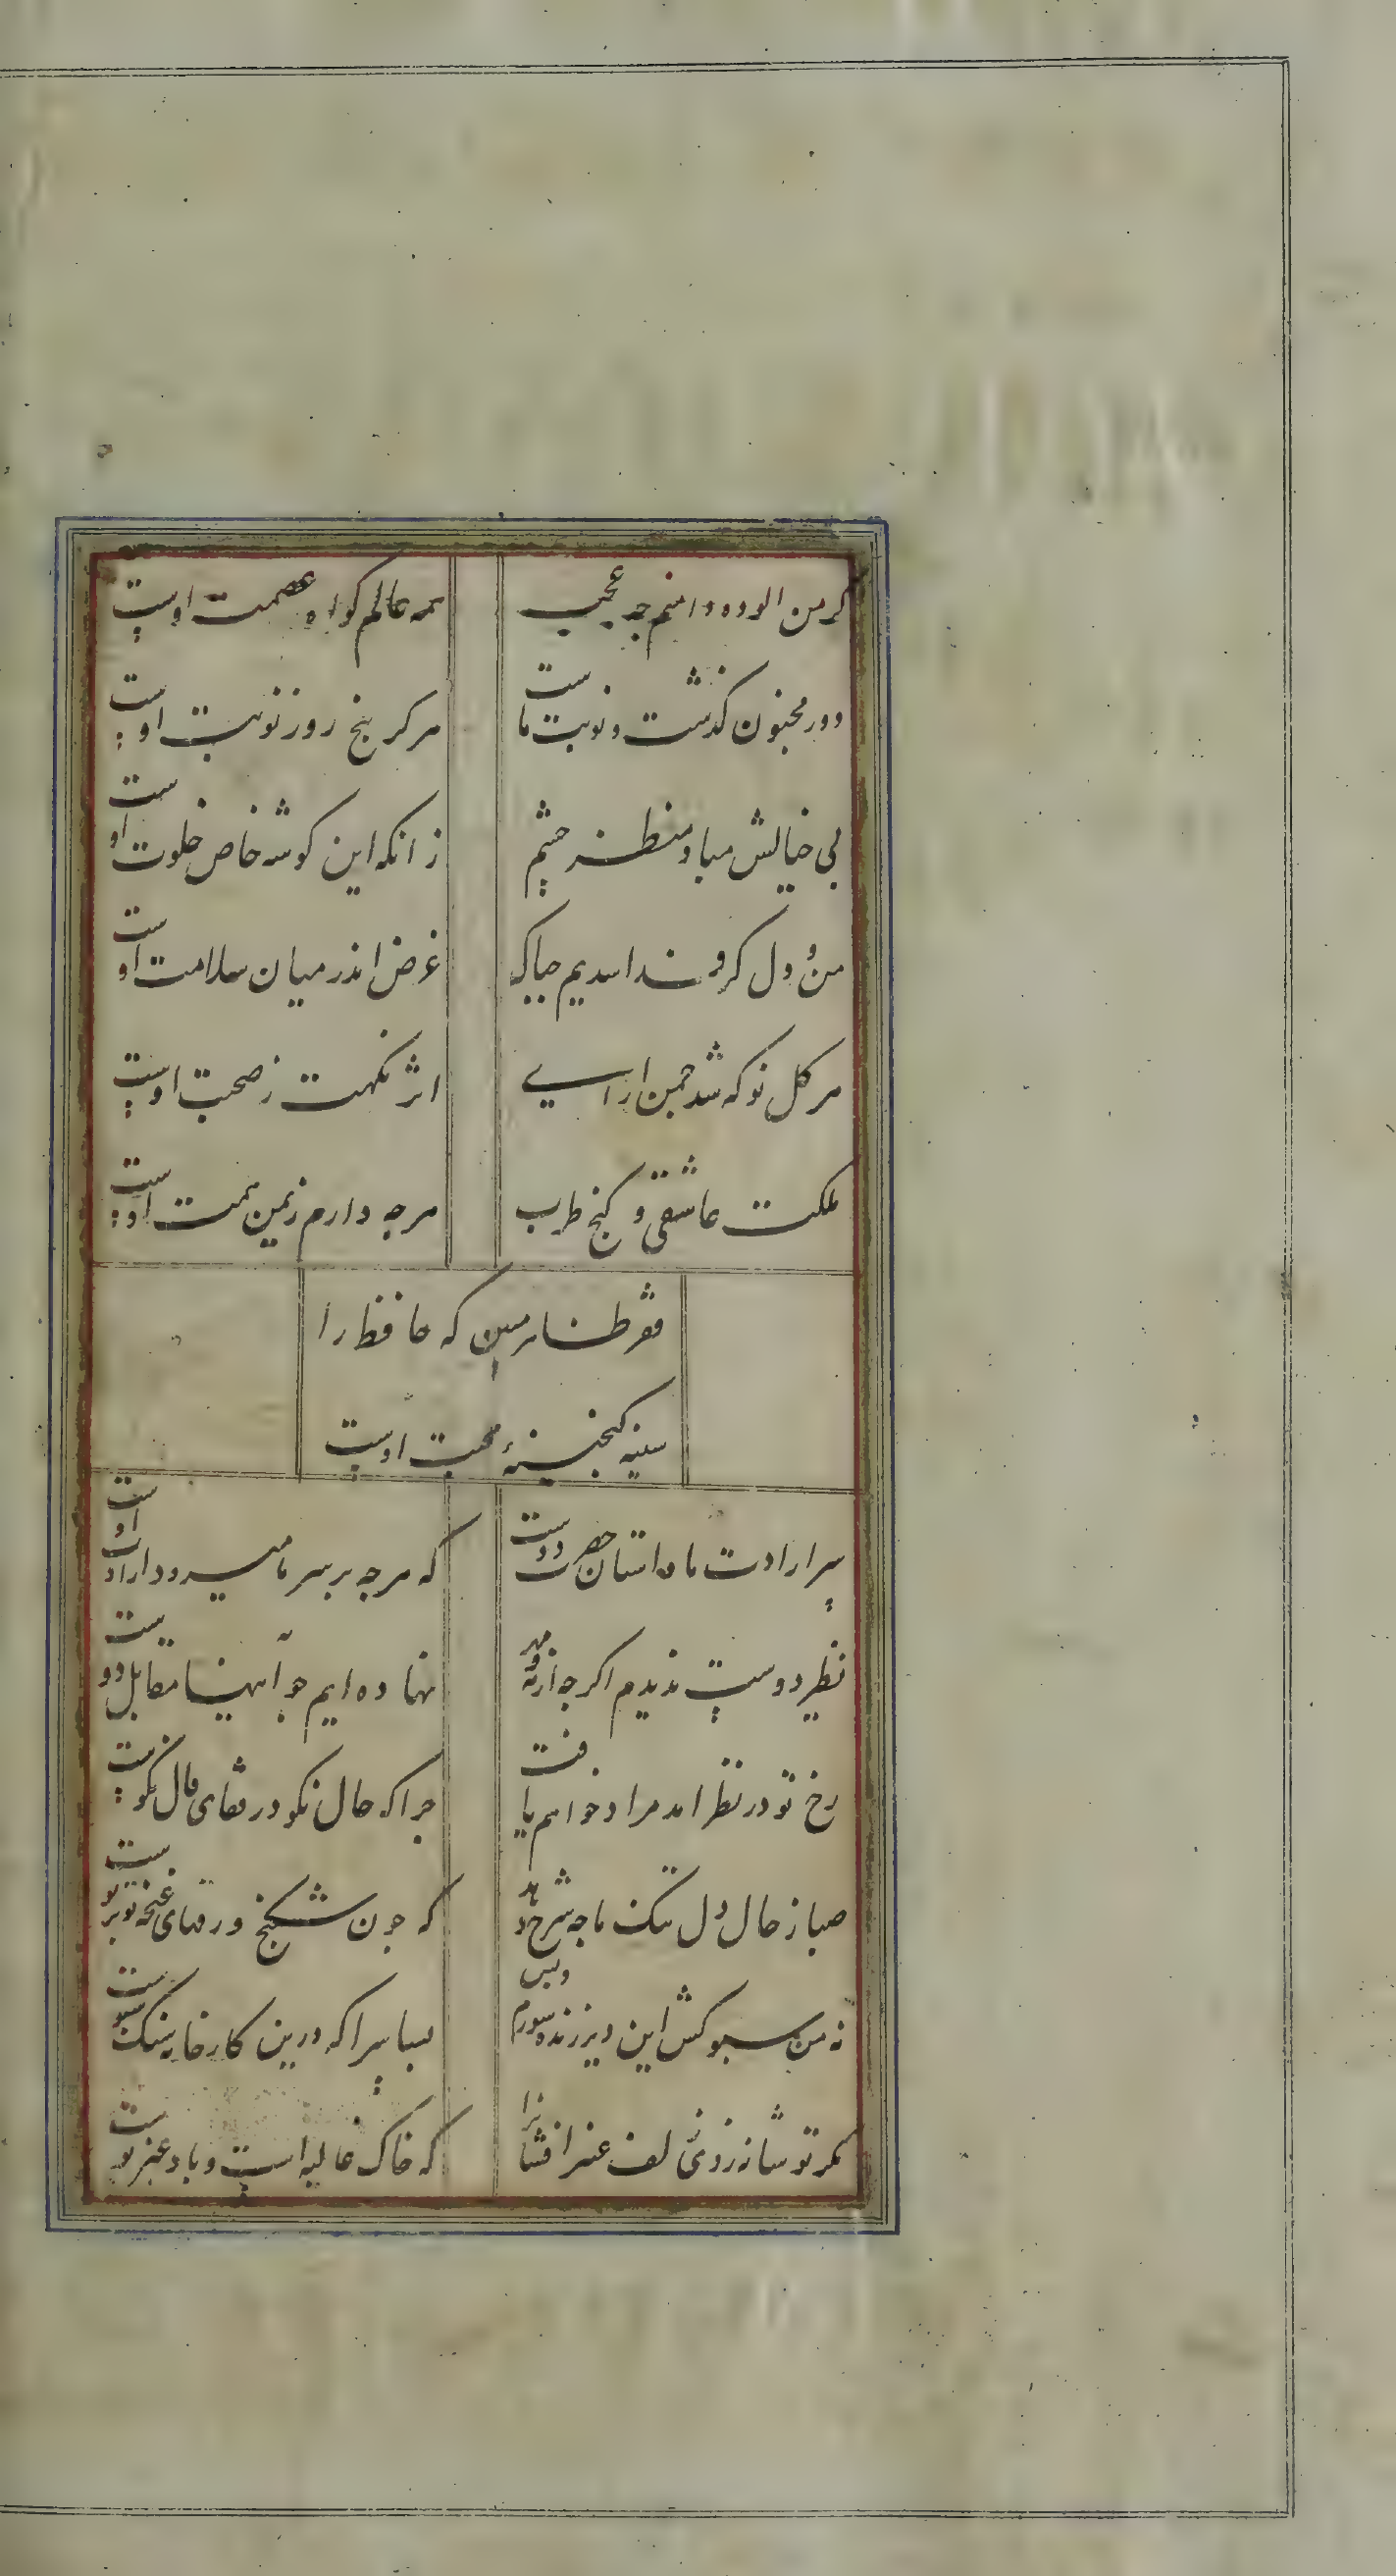 کر من الوده دامنم جه عجب
همه عالم کواه عصمت اوست
دور مجنون کذشت و نوبت ماست
هر کرا پنج روز نوبت اوست
بی خیالش مباد منظر چشم
زانکه این کوشه خاص خلوت اوست
من و دل کر فدا شدیم چه باک
غرض اندر میان سلامت اوست
هر کل نو که شد چمن ارای
اثر نکهت ز صحبت اوست
ملکت عاشقی و کنج طرب
هرجه دارم ز یمن همت اوست
فقر ظاهر مبین که حافظ را
سینه کنجینهٔ محبت اوست
سر ارادت ما و استان حضرت دوست
که هرجه بر سر ما میرود ارادت اوست
نظیر دوست ندیدم اکر جه از مه و مهر
نهاده ایم جو آینها مقابل دوست
رخ تو در نظر امد مراد خواهم یافت
جرا که حال نکو در قفای فال نکوست
صبا ز حال دل تنک ما جه شرح دهد
که جون شکنج ورقهای غنچه تو بر توست
نه من سبو کش این دیر رند سوزم و بس
بسا سرا که درین کارخانه سنک سبوست
مکر تو شانه زدی زلف عنبر افشان را
که خاک غالیه است و باد عنبر بوست